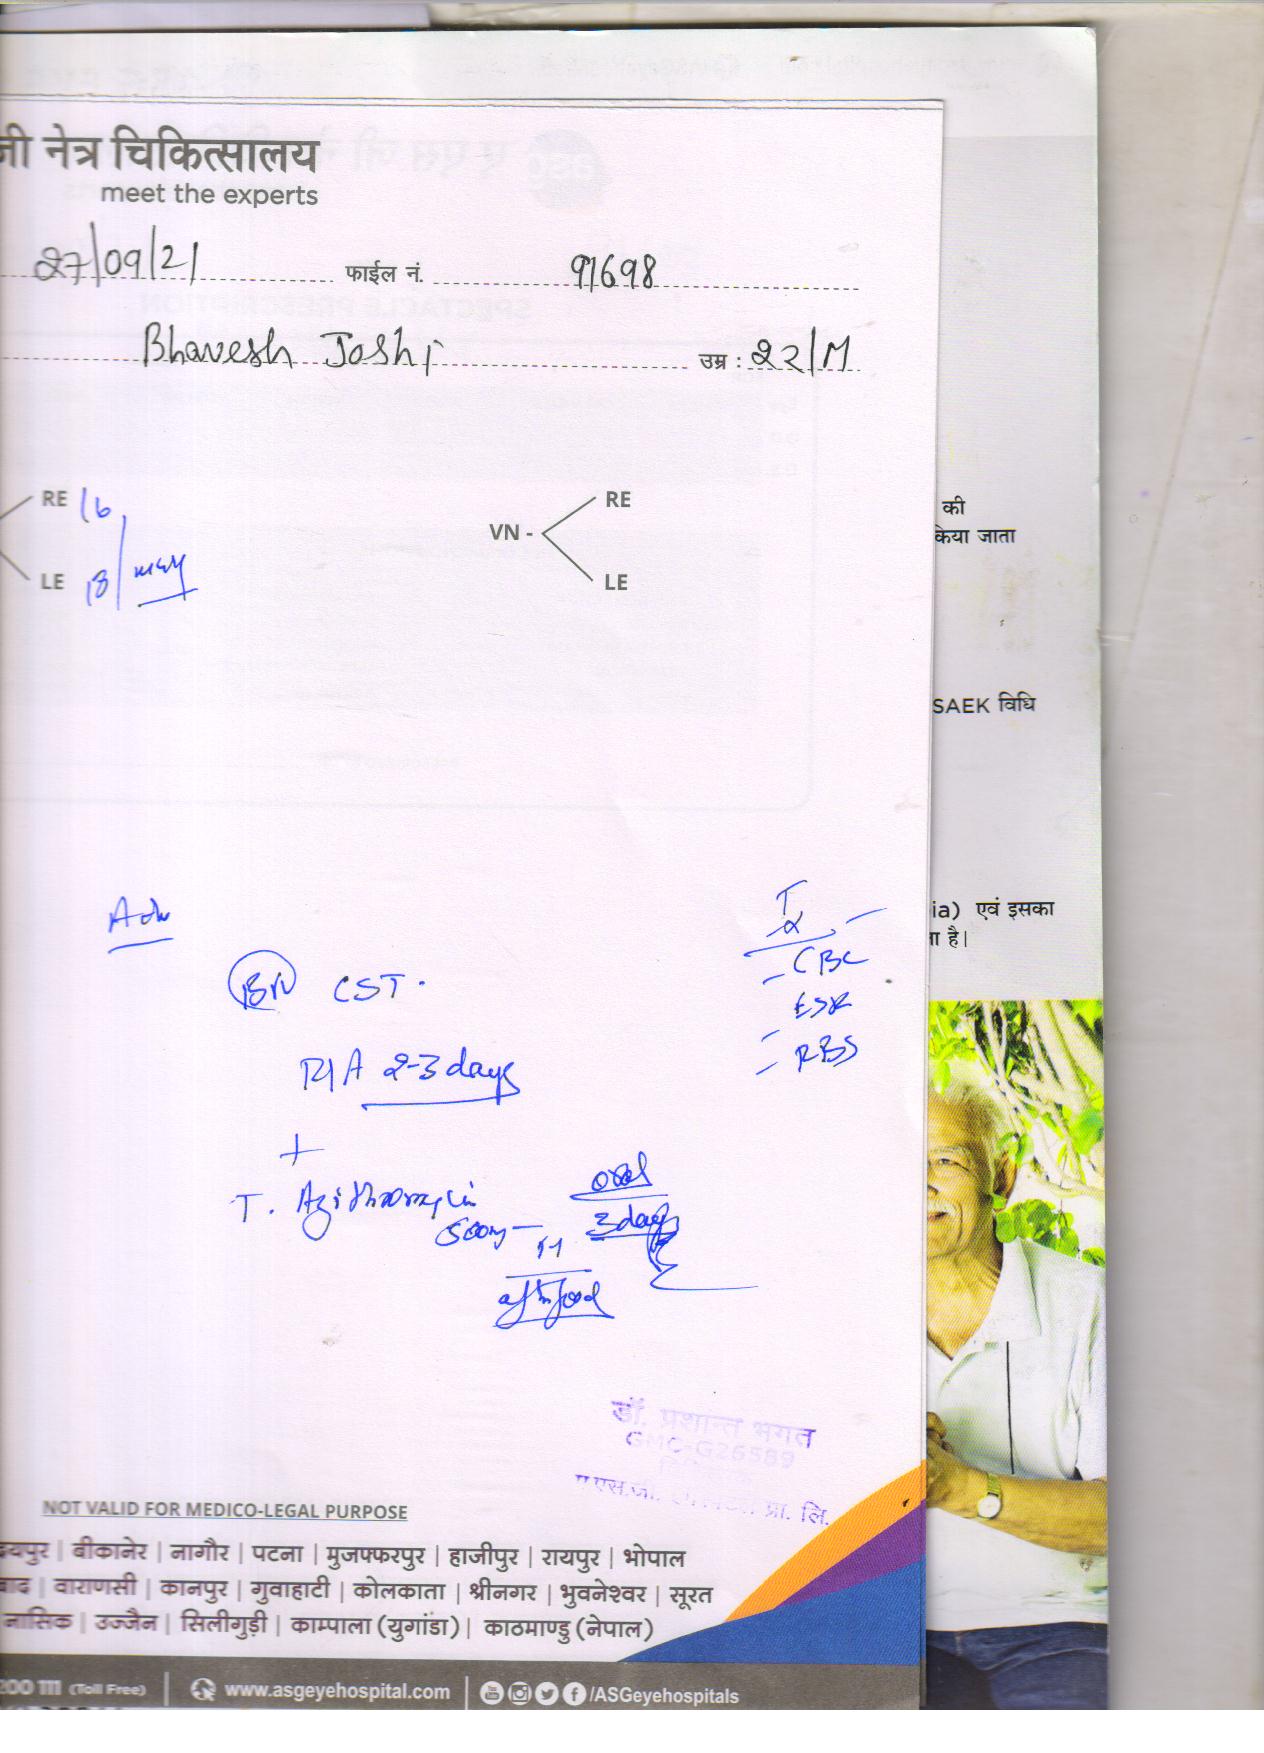 जी नेत्र चिकित्सालय
meet the experts
27/09/21 फाईल नं. 91698
Bhavesh Joshi उम्र : 22/M
RE 16
VN - RE
LE 18 may
LE
की
किया जाता
SAEK विधि
ia) एवं इसका
ता है।
Adv
CBC
CST.
ESR
RBS
2-3 days
+
T. Azithromycin oral
500mg 3 days
after food
डॉ. प्रशान्त भगत
GMC-G26589
एस.जी. प्रा. लि.
NOT VALID FOR MEDICO-LEGAL PURPOSE
यपुर | बीकानेर | नागौर | पटना | मुजफ्फरपुर | हाजीपुर | रायपुर | भोपाल
बाद | वाराणसी | कानपुर | गुवाहाटी | कोलकाता | श्रीनगर | भुवनेश्वर | सूरत
नासिक | उज्जैन | सिलीगुड़ी | काम्पाला (युगांडा) | काठमाण्डु (नेपाल)
200 111 (Toll Free) | www.asgeyehospital.com | /ASGeyehospitals